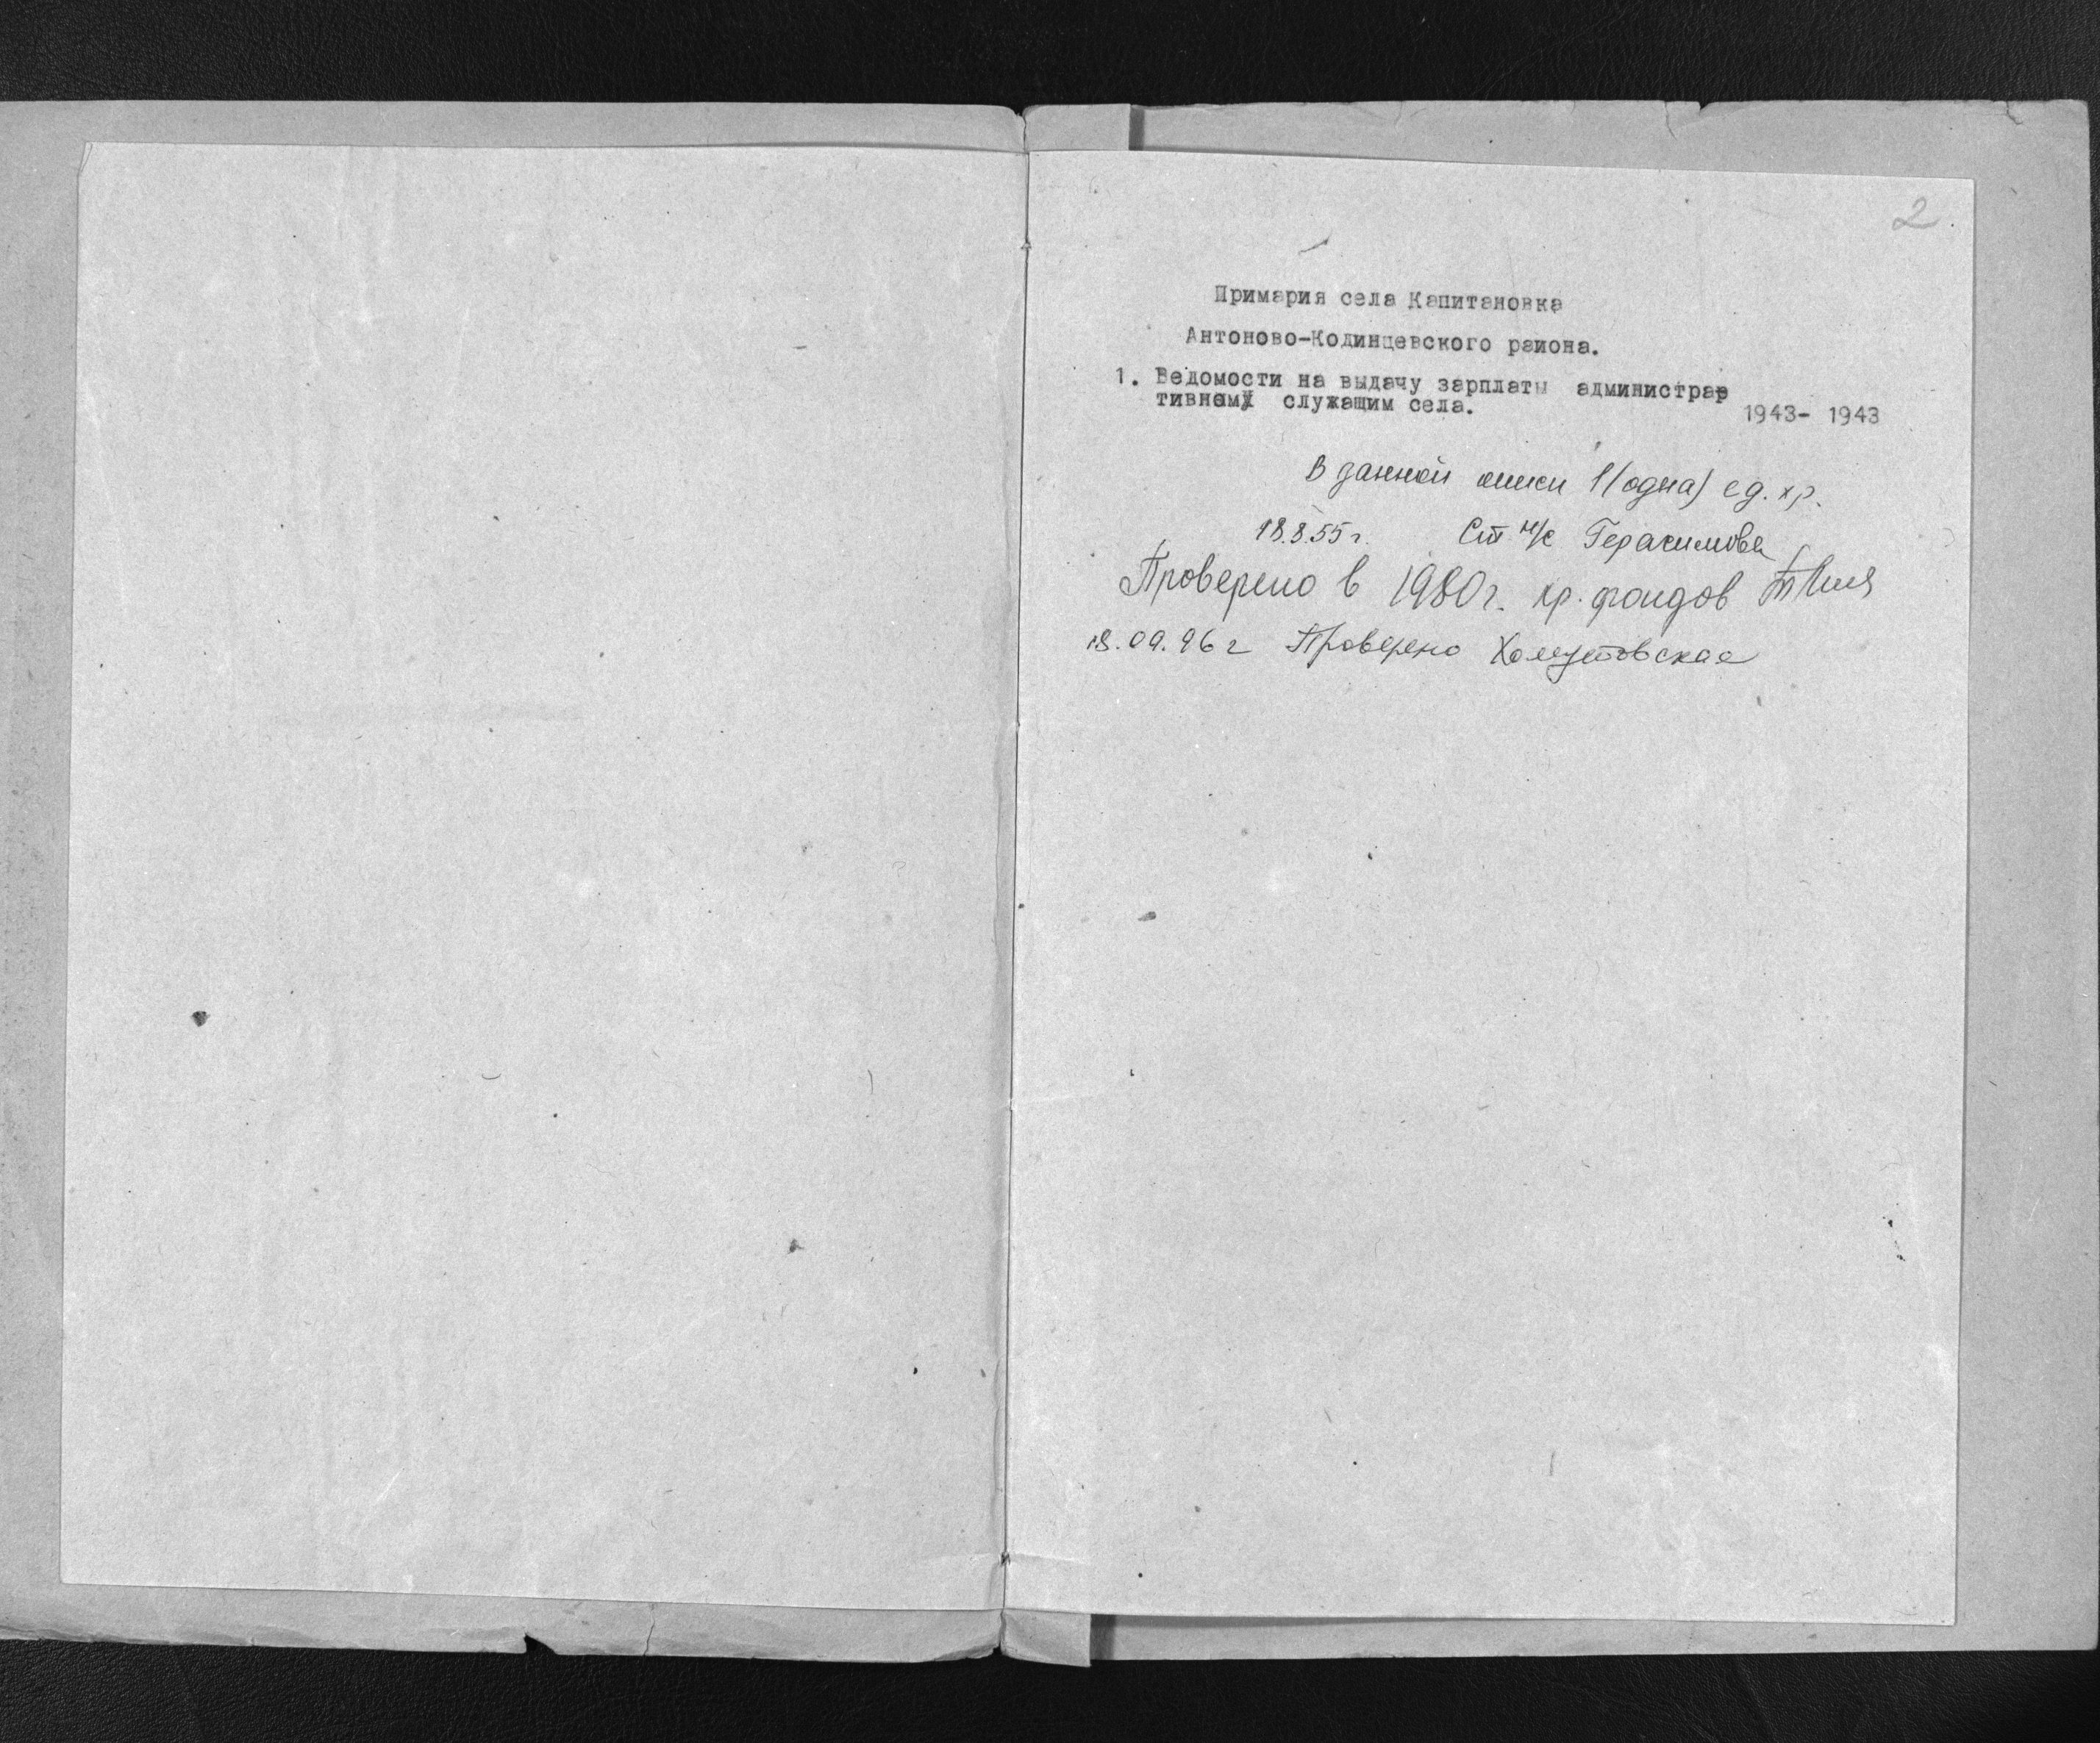 2
Примария села Капитановка
Антоново-Кодинцевского раиона.
1. Ведомости на выдачу зарплаты администра
тивным служащим села. 1943- 1943
В данной описи 1 (одна) ед. хр.
18.8.55 г. Ст н/с Герасимова
Проверено в 1980 г. хр. фондов
18.09.96 г Проверено Хомутовская